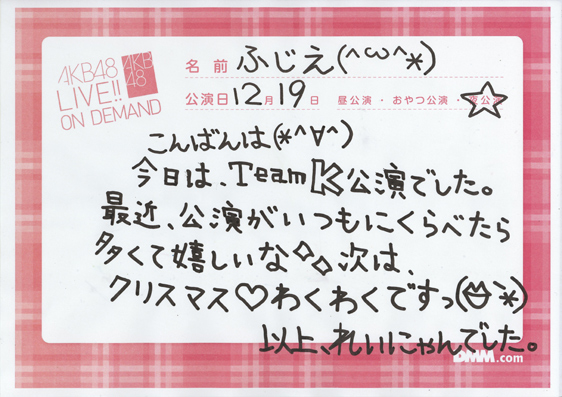 AKB48
LIVE!!
ON DEMAND
AKB
48
名前 ふじえ(^ω^*)
公演日 12月19日 昼公演・おやつ公演・夜公演
こんばんは(*^∀^)
今日は、Team K公演でした。
最近、公演がいつもにくらべたら
多くて嬉しいな 次は、
クリスマス♡わくわくですっ(^∀^*)
以上、れいにゃんでした。
DMM.com